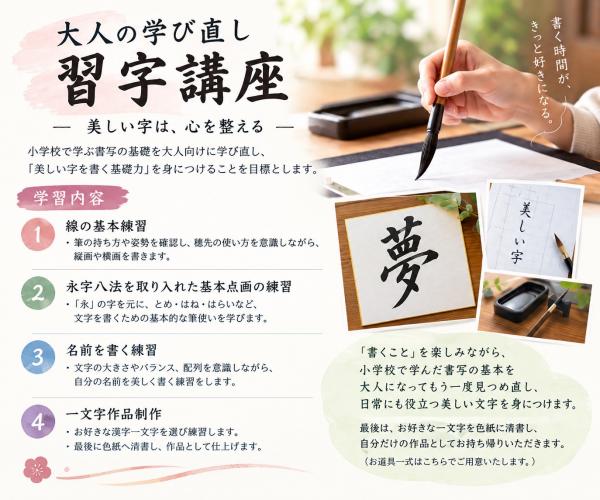 大人の学び直し
習字講座
美しい字は、心を整える
小学校で学ぶ書写の基礎を大人向けに学び直し、
「美しい字を書く基礎力」を身につけることを目標とします。
書く時間が、
きっと好きになる。
学習内容
1
線の基本練習
・筆の持ち方や姿勢を確認し、穂先の使い方を意識しながら、
縦画や横画を書きます。
2
永字八法を取り入れた基本点画の練習
・「永」の字を元に、とめ・はね・はらいなど、
文字を書くための基本的な筆使いを学びます。
3
名前を書く練習
・文字の大きさやバランス、配列を意識しながら、
自分の名前を美しく書く練習をします。
4
一文字作品制作
・お好きな漢字一文字を選び練習します。
・最後に色紙へ清書し、作品として仕上げます。
夢
美しい字
「書くこと」を楽しみながら、
小学校で学んだ書写の基本を
大人になってもう一度見つめ直し、
日常にも役立つ美しい文字を身につけます。
最後は、お好きな一文字を色紙に清書し、
自分だけの作品としてお持ち帰りいただきます。
（お道具一式はこちらでご用意いたします。）